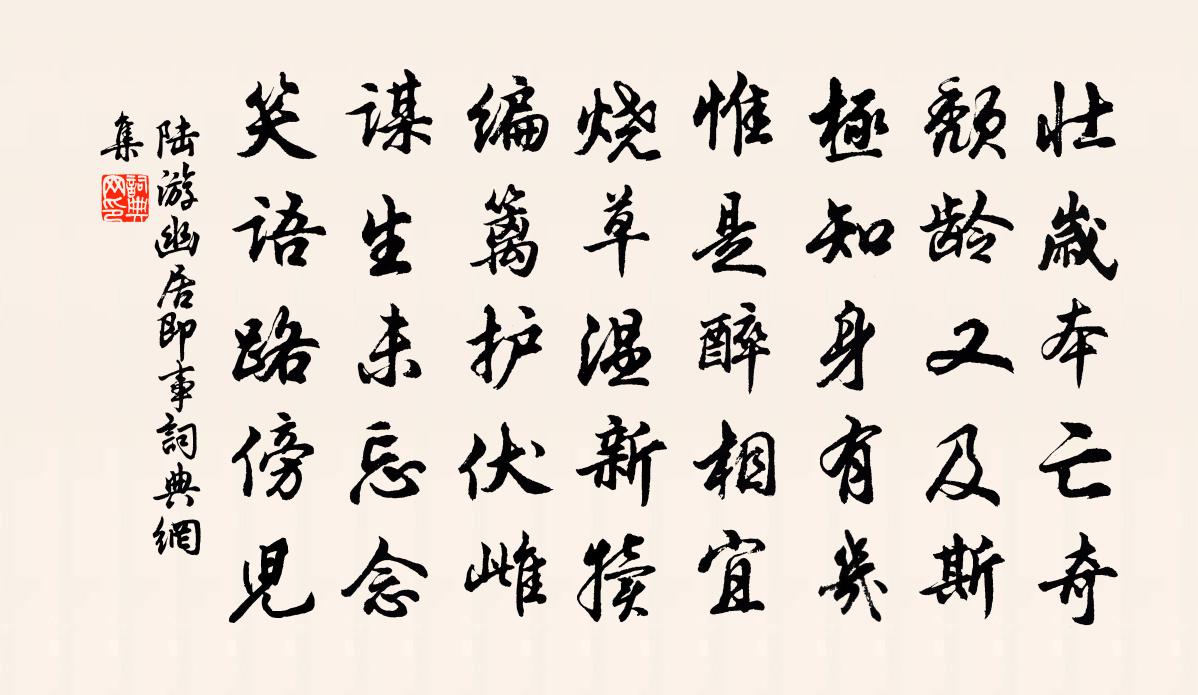 壮歲本亡奇
颓龄又及斯
極知身有幾
惟是醉相宜
烧草温新犊
编篱护伏雌
谋生未忘念
笑语路傍児
陆游幽居即事詞典網
集
詞典
网印